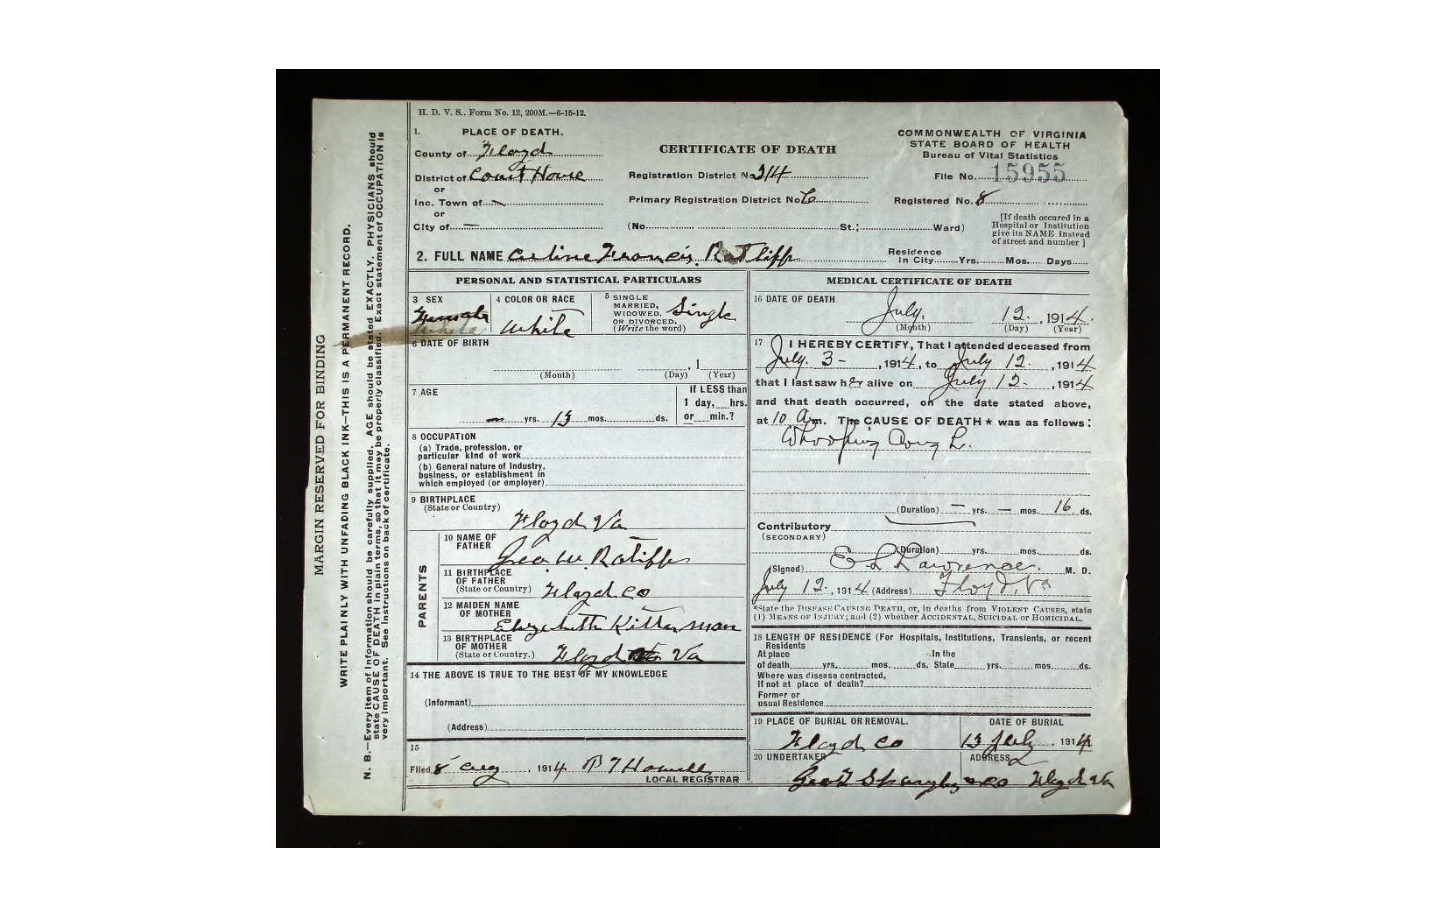 H. D. V. S., Form No. 12, 200M.—6-15-12.
1. PLACE OF DEATH.
County of Floyd
District of Court House
or
Inc. Town of —
or
City of —
CERTIFICATE OF DEATH
Registration District No. 314
Primary Registration District No.
(No. St.; Ward)
COMMONWEALTH OF VIRGINIA
STATE BOARD OF HEALTH
Bureau of Vital Statistics
File No. 15955
Registered No. 8
[If death occured in a
Hospital or Institution
give its NAME instead
of street and number]
2. FULL NAME Francis Ratliff
Residence
In City Yrs. Mos. Days
PERSONAL AND STATISTICAL PARTICULARS
3 SEX
Female
4 COLOR OR RACE
White
5 SINGLE
MARRIED,
WIDOWED,
OR DIVORCED.
(Write the word)
Single
6 DATE OF BIRTH
, 1
(Month) (Day) (Year)
7 AGE
— yrs. 13 mos. ds.
If LESS than
1 day, hrs.
or min.?
8 OCCUPATION
(a) Trade, profession, or
particular kind of work
(b) General nature of industry,
business, or establishment in
which employed (or employer)
9 BIRTHPLACE
(State or Country)
Floyd Va
PARENTS
10 NAME OF
FATHER
Geo. W. Ratliff
11 BIRTHPLACE
OF FATHER
(State or Country)
Floyd Co
12 MAIDEN NAME
OF MOTHER
Elizabeth Kitterman
13 BIRTHPLACE
OF MOTHER
(State or Country.)
Floyd Va
14 THE ABOVE IS TRUE TO THE BEST OF MY KNOWLEDGE
(Informant)
(Address)
15
Filed 8 Aug, 1914 Howell
LOCAL REGISTRAR
MEDICAL CERTIFICATE OF DEATH
16 DATE OF DEATH
July, 12, 1914.
(Month) (Day) (Year)
17 I HEREBY CERTIFY, That I attended deceased from
July. 3 -, 1914, to July 12., 1914
that I last saw her alive on July 12., 1914
and that death occurred, on the date stated above,
at 10 a.m. The CAUSE OF DEATH* was as follows:
Whooping Cough.
(Duration) — yrs. — mos. 16 ds.
Contributory
(SECONDARY)
(Duration) yrs. mos. ds.
(Signed) Lawrence, M. D.
July 12, 1914 (Address) Floyd, Va
*State the DISEASE CAUSING DEATH, or, in deaths from VIOLENT CAUSES, state
(1) MEANS OF INJURY; and (2) whether ACCIDENTAL, SUICIDAL or HOMICIDAL.
18 LENGTH OF RESIDENCE (For Hospitals, Institutions, Transients, or recent
Residents
At place In the
of death yrs. mos. ds. State yrs. mos. ds.
Where was disease contracted,
If not at place of death?
Former or
usual Residence
19 PLACE OF BURIAL OR REMOVAL.
Floyd Co
DATE OF BURIAL
13 July, 1914
20 UNDERTAKER
ADDRESS
Floyd Va
MARGIN RESERVED FOR BINDING
WRITE PLAINLY WITH UNFADING BLACK INK—THIS IS A PERMANENT RECORD.
N. B.—Every item of information should be carefully supplied. AGE should be stated EXACTLY. PHYSICIANS should
state CAUSE OF DEATH in plain terms, so that it may be properly classified. Exact statement of OCCUPATION is
very important. See instructions on back of certificate.